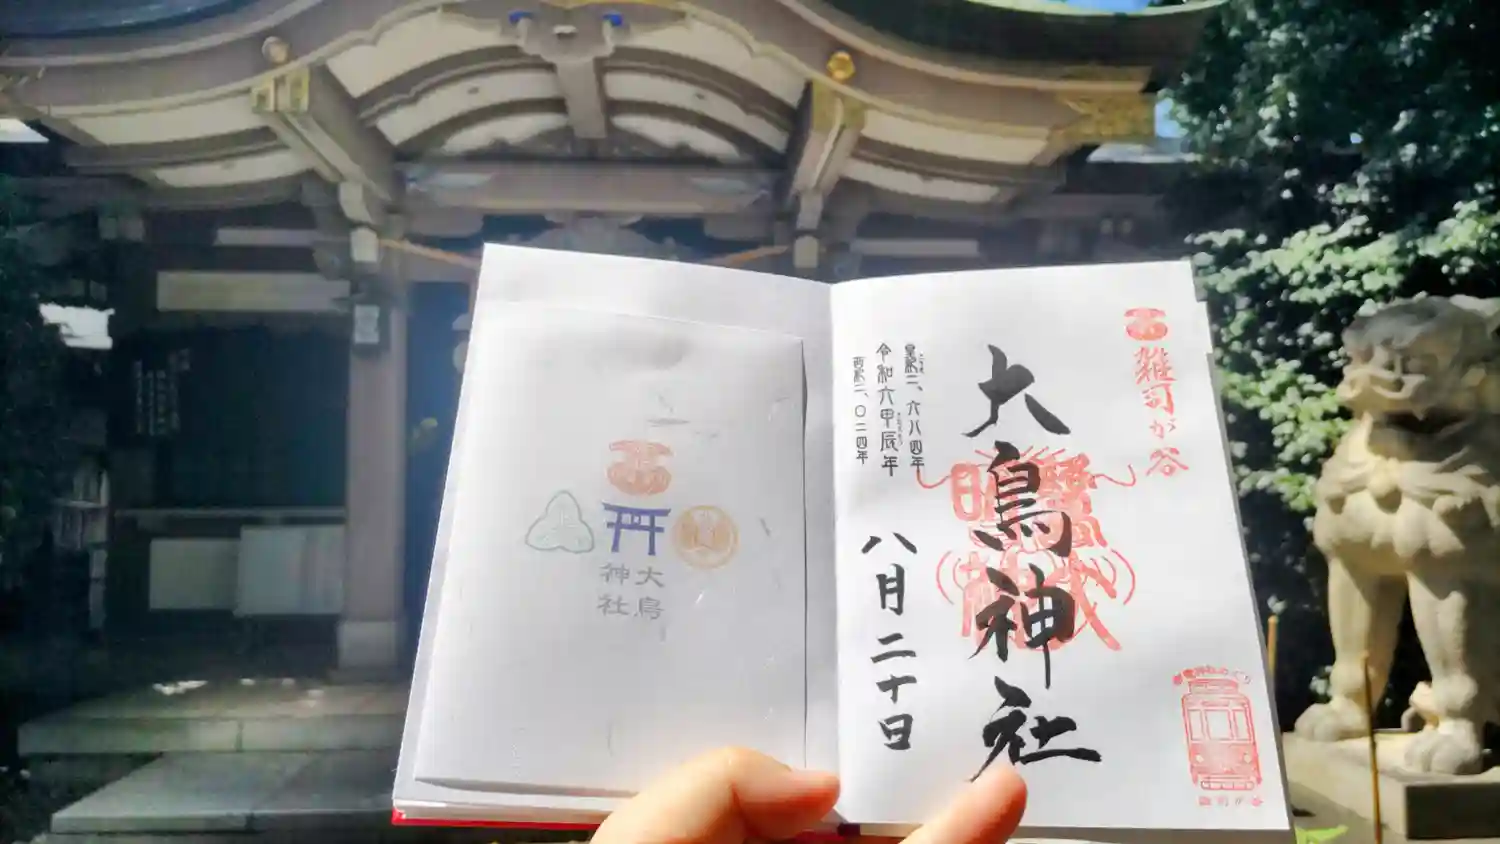 雑司が谷
大鳥神社
皇紀二、六八四年
令和六甲辰年
西紀二、〇二四年
八月二十日
大鳥
神社